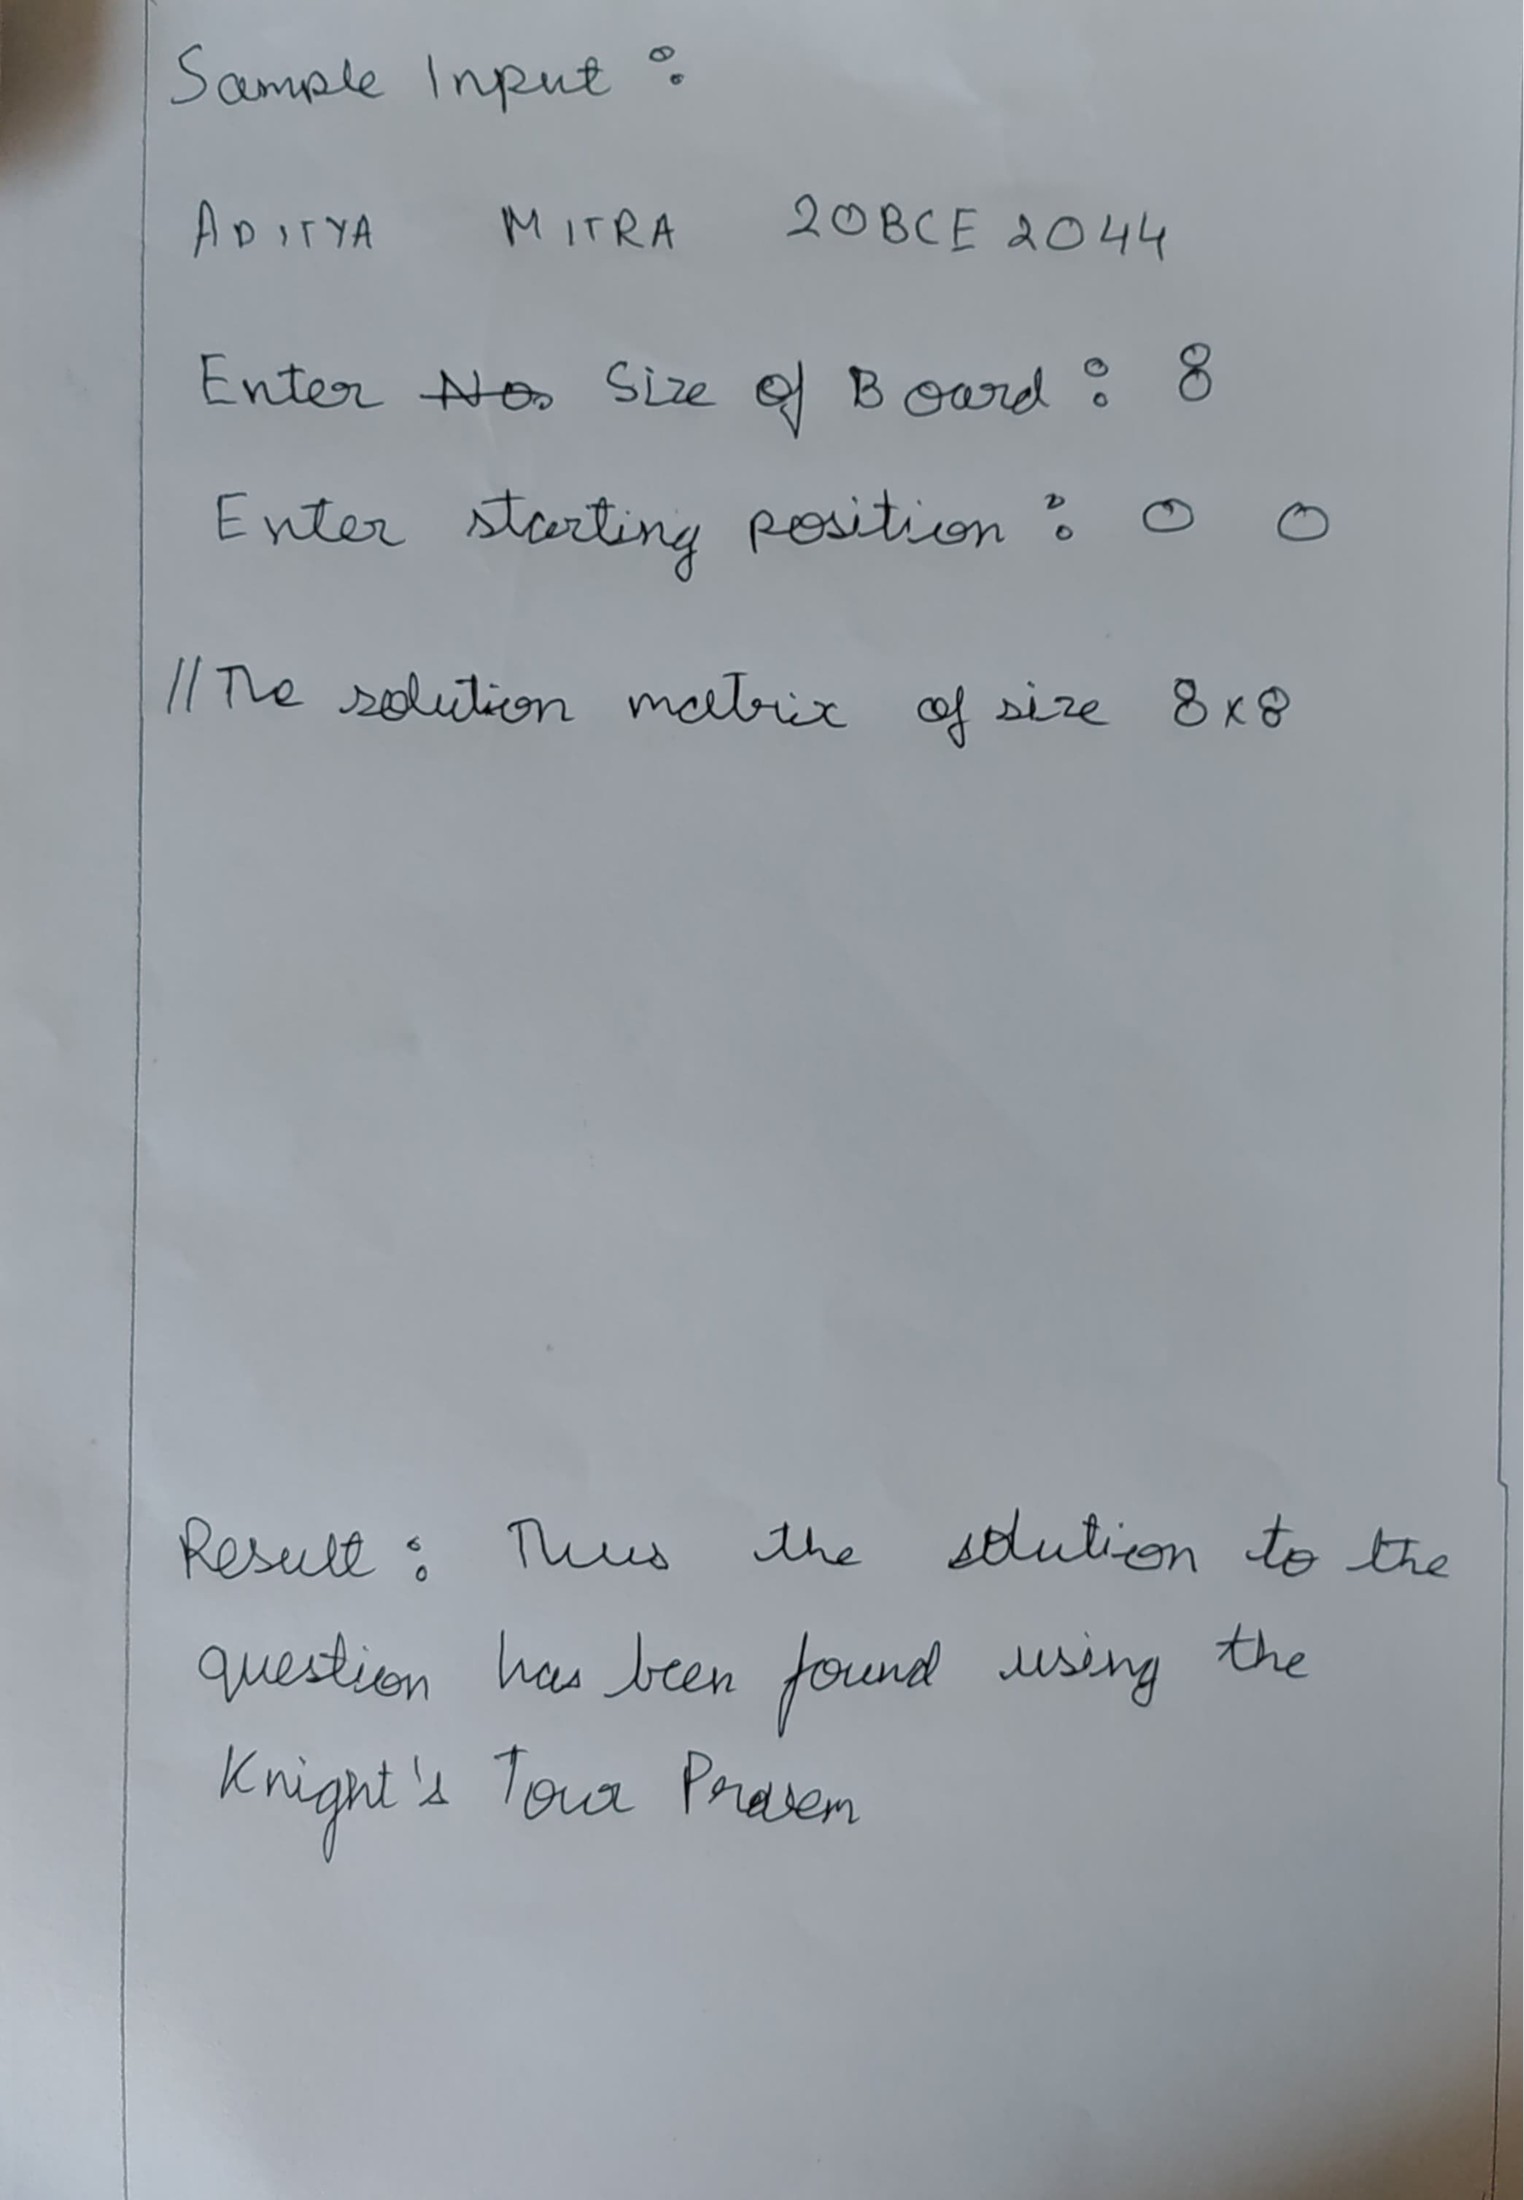 Sample Input :
ADITYA MITRA 20BCE2044
Enter No. Size of Board : 8
Enter starting position : 0 0
// The solution matrix of size 8x8
Result : Thus the solution to the
question has been found using the
Knight's Tour Problem